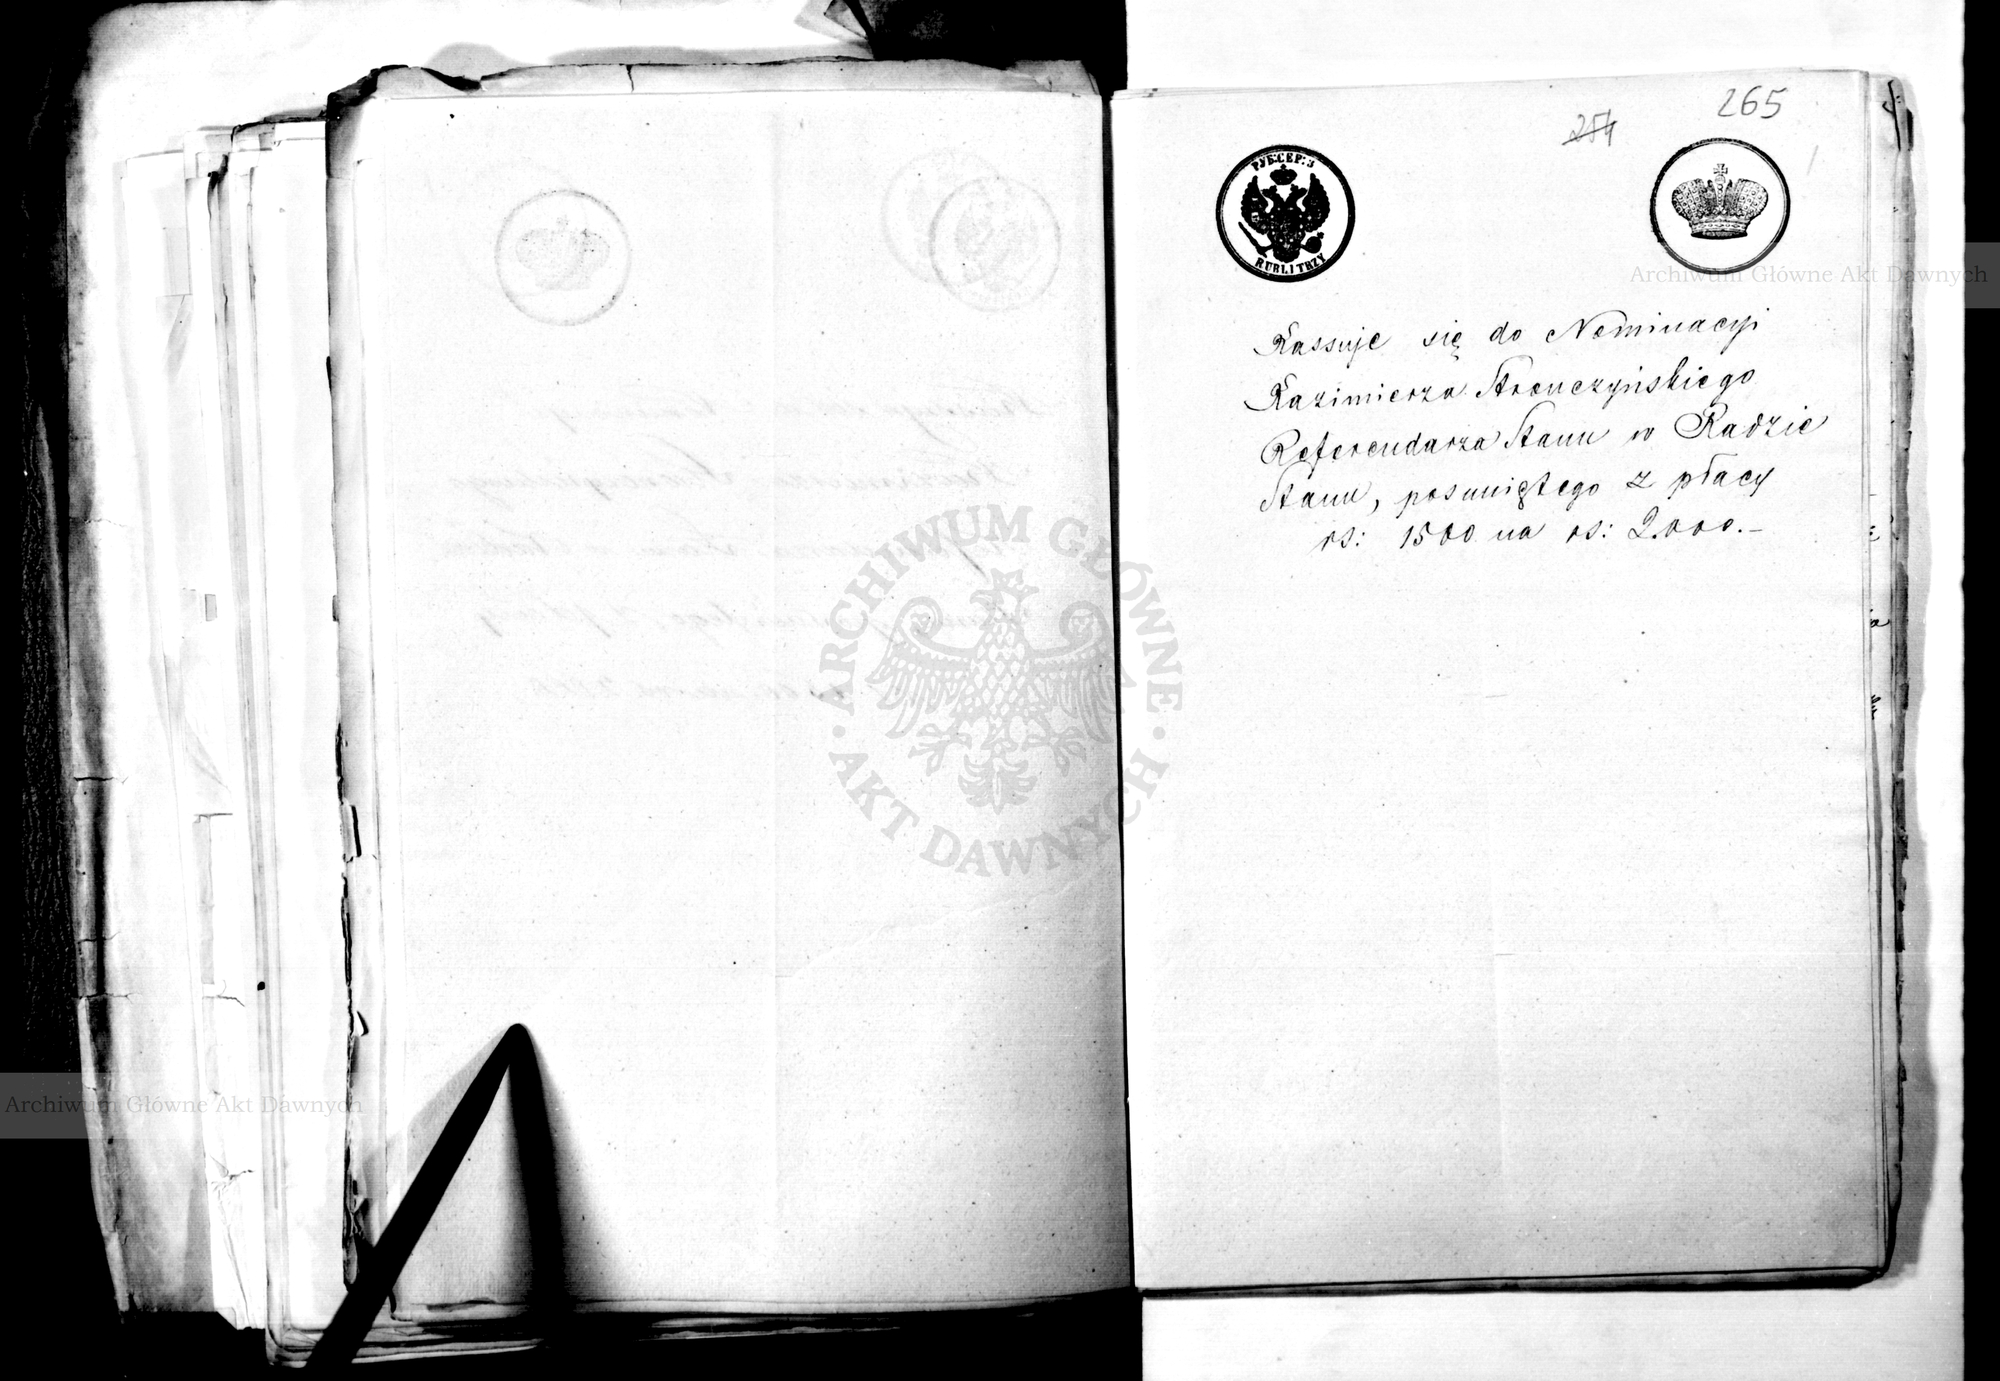 265
254
РУБ:СЕР: 3
RUBLI TRZY
Archiwum Główne Akt Dawnych
Kassuje się do Nominacyi
Kazimierza Stronczyńskiego
Referendarza Stanu w Radzie
Stanu, posuniętego z płacy
rs: 1500 na rs: 2.000.—
ARCHIWUM GŁÓWNE
AKT DAWNYCH
Archiwum Główne Akt Dawnych